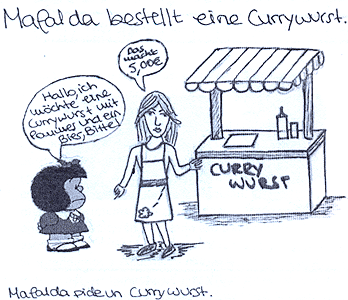 Mafalda bestellt eine Currywurst.
Das
macht
5,00€
Hallo, ich
möchte eine
Currywurst mit
Pommes und ein
Bier, Bitte!
CURRY
WURST
Mafalda pide un Currywurst.